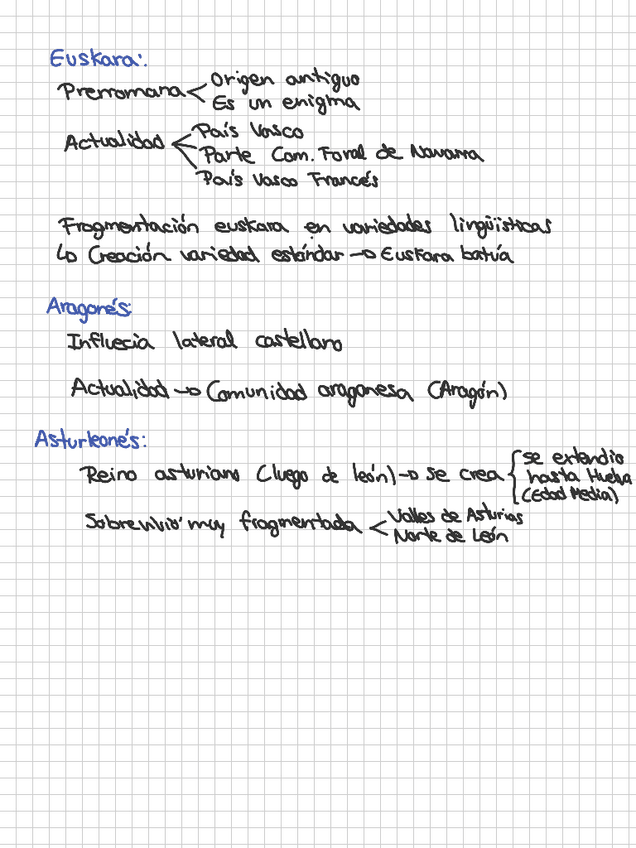 Euskara:
Prerromana < Origen antiguo
Es un enigma
Actualidad < País Vasco
Parte Com. Foral de Navarra
País Vasco Francés
Fragmentación euskara en variedades lingüísticas
↳ Creación variedad estándar → Euskara batúa
Aragonés:
Influecia lateral castellano
Actualidad → Comunidad aragonesa (Aragón)
Asturleonés:
Reino asturiano (luego de león) → se crea { se extendio
hasta Huelva
(Edad Media)
Sobrevivió muy fragmentada < Valles de Asturias
Norte de León